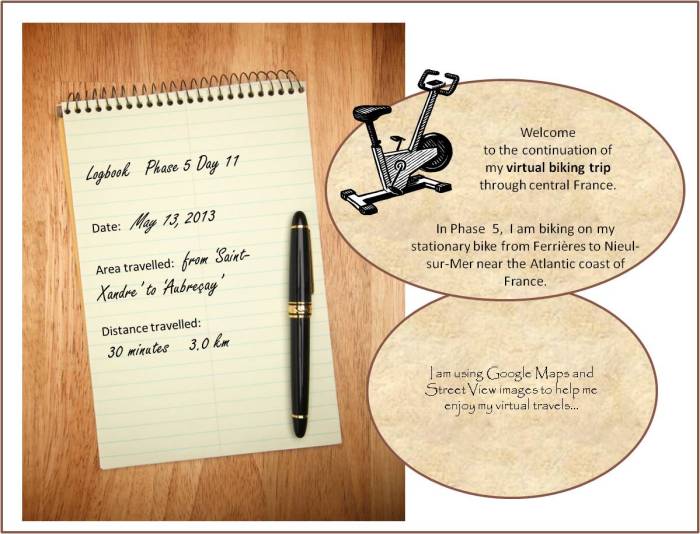 Logbook Phase 5 Day 11
Date: May 13, 2013
Area travelled: from 'Saint-
Xandre' to 'Aubreçay'
Distance travelled:
30 minutes 3.0 km
Welcome
to the continuation of
my virtual biking trip
through central France.
In Phase 5, I am biking on my
stationary bike from Ferrières to Nieul-
sur-Mer near the Atlantic coast of
France.
I am using Google Maps and
Street View images to help me
enjoy my virtual travels...